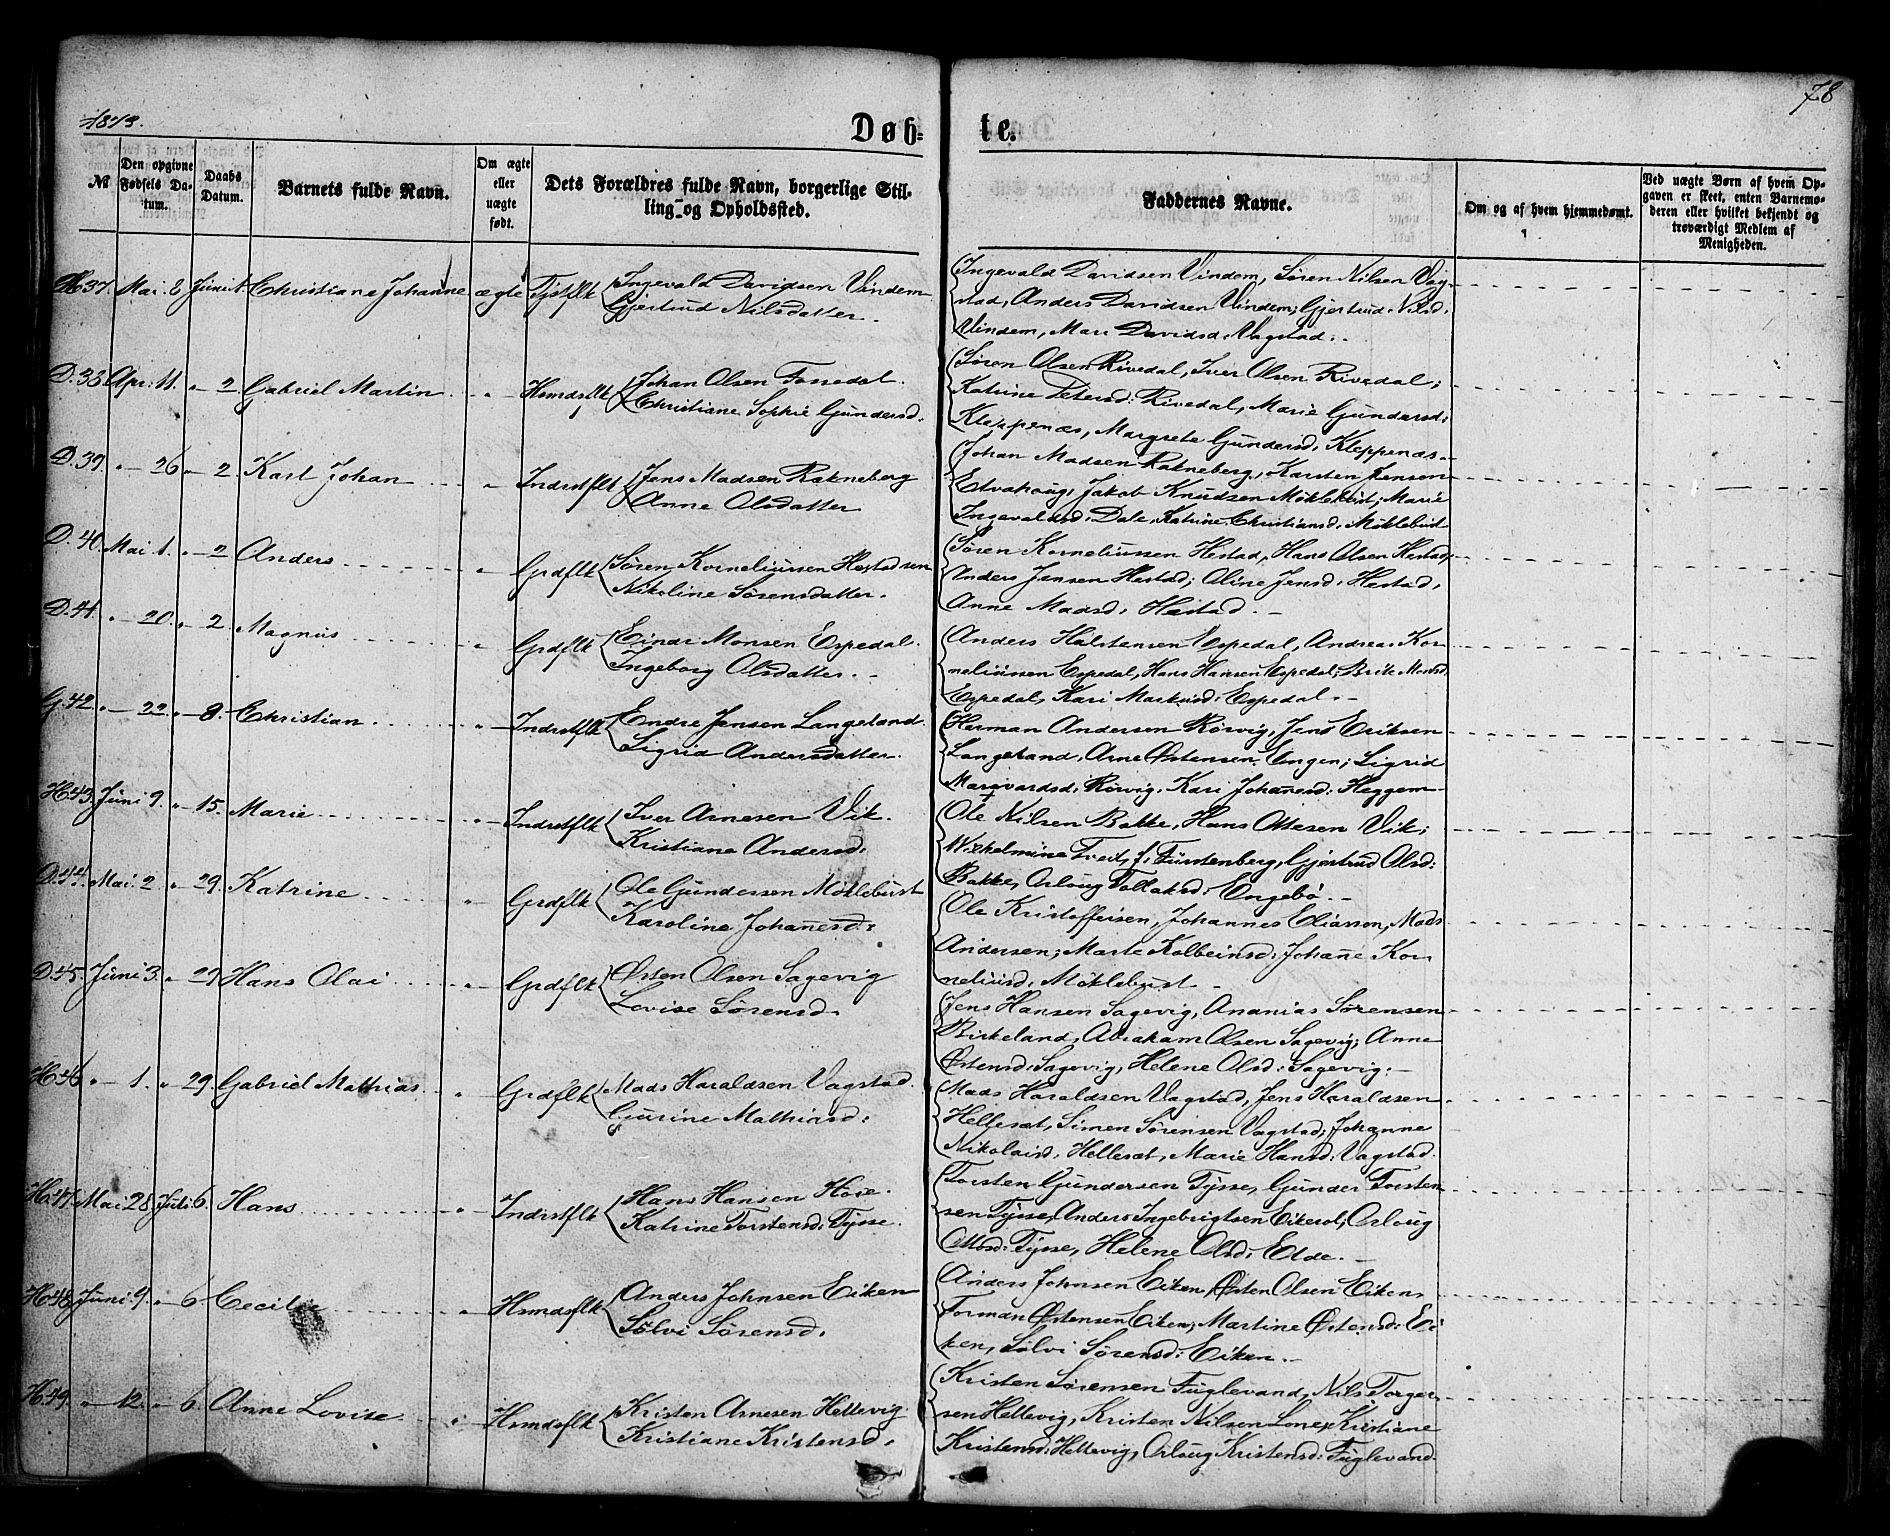 1873.
78
Døbte.
№
Den opgivne Fødsels Datum.
Daabs Datum.
Barnets fulde Navn.
Om ægte eller uægte født.
Dets Forældres fulde Navn, borgerlige Stilling og Opholdssted.
Faddernes Navne.
Om og af hvem hjemmedøbt.
Ved uægte Børn af hvem Opgaven er skeet, enten Barnemoderen eller hvilket bekjendt og troværdigt Medlem af Menigheden.
H. 37. Mai. 8 Juni 1. Christiane Johanne ægte Tjstflk Ingevald Davidsen Vindem
Gjertrud Nilsdatter.
Ingevald Davidsen Vindem, Søren Nilsen Vag-
stad, Anders Davidsen Vindem; Gjertrud Nilsd.
Vindem, Mari Davidsd: Vagstad.
D. 38. Apr. 11. " 2. Gabriel Martin " Hsmdsflk Johan Olsen Fossedal.
Christiane Sophie Gundersd.
Søren Olsen Rivedal, Iver Olsen Rivedal;
Katrine Petersd: Rivedal, Marie Gundersd:
Kleppenæs, Margrete Gundersd. Kleppenæs.
D. 39. " 26 " 2 Karl Johan " Indrstflk Jens Madsen Rakneberg
Anne Olsdatter
Johan Madsen Rakneberg, Karsten Jensen
Etvahoug, Jakob Knudsen Møklebust; Marie
Ingevaldsd. Dale, Katrine Christiansd. Møklebust
D. 40. Mai. 1. " 2 Anders " Grdflk Søren Korneliussen Hestad
Nikoline Sørensdatter.
Søren Korneliussen Hestad, Hans Olsen Hestad,
Anders Jensen Hestad; Oline Jensd. Hestad,
Anne Madsd. Hestad.
D. 41. " 20. " 2. Magnus " Grdflk Einar Monsen Espedal.
Ingeborg Olsdatter.
Anders Halstensen Espedal, Andreas Kor-
neliussen Espedal, Hans Hansen Espedal; Brite Monsd.
Espedal, Kari Markusd. Espedal.
G. 42 " 22. " 8. Christian " Indrstflk Endre Jensen Langeland.
Sigrid Andersdatter
Herman Andersen Rörvig, Jens Eriksen
Langeland, Arne Østensen Engen; Sigrid
Marqvardsd: Rörvig, Kari Johanesd: Heggem
H. 43. Juni 9. " 15. Marie " Indrstflk Iver Arnesen Vik.
Kristiane Andersd.
Ole Nilsen Bakke, Hans Ottesen Vik;
Wilhelmine Tveit, f. Fürstenberg, Gjertrud Olsd:
Bakke, Orloug Tollaksd: Engebö.
D. 44. Mai. 2 " 29. Katrine " Grdflk Ole Gundersen Möklebust
Karoline Johanesd.
Ole Kristoffersen, Johannes Eliassen, Mads
Andersen; Marte Kolbeinsd: Johane Kor-
neliusd. Möklebust
D. 45. Juni 3. " 29 Hans Olai " Grdflk Østen Olsen Sagevig
Lovise Sørensd.
Jens Hansen Sagevig, Ananias Sørensen
Birkeland, Abraham Olsen Sagevig; Anne
Østensd: Sagevig, Helene Olsd: Sagevig.
H. 46 " 1. " 29. Gabriel Mathias " Grdflk Mads Haraldsen Vagstad.
Gurine Mathiasd:
Mads Haraldsen Vagstad, Jens Haraldsen
Hellesæt, Simen Sørensen Vagstad; Johanne
Nikolaisd. Hellesæt, Marie Hansd: Vagstad.
H. 47. Mai. 28. Juli 6. Hans " Indrstflk Hans Hansen Hove.
Katrine Torstensd: Tysse.
Torsten Gundersen Tysse, Gunder Torsten-
sen Tysse, Anders Ingebrigtsen Eikerol; Orloug
Olsd: Tysse, Helene Olsd: Elde.
H. 48. Juni 9. " 6 Cecilie " Hsmdsflk Anders Johnsen Eiken
Sølvi Sørensd.
Anders Johnsen Eiken, Østen Olsen Eiken,
Torman Østensen Eiken; Martine Østensd: Ei-
ken, Sølvi Sørensd: Eiken.
H. 49. " 12. " 6. Anne Lovise " Hsmdsflk Kristen Arnesen Hellevig
Kristiane Kristensd.
Kristen Sørensen Fuglevand, Nils Torger-
sen Hellevig, Kristen Nilsen Lone; Kristiane
Kristensd: Hellevig, Orloug Kristensd: Fuglevand.